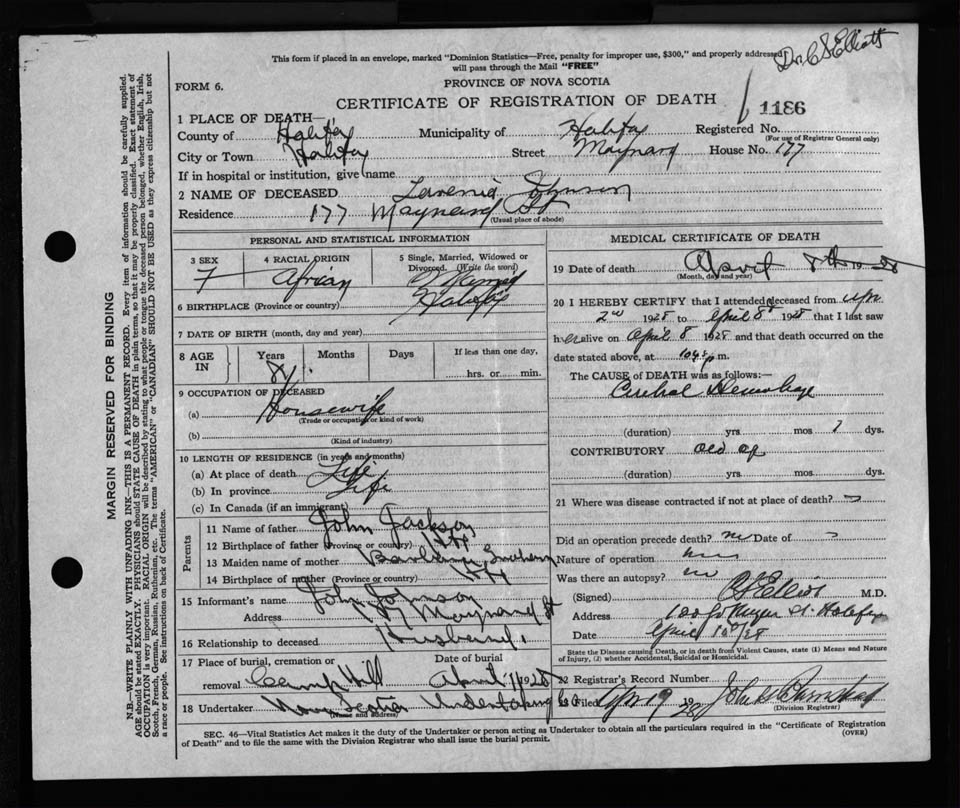 Dr. C S Elliott
This form if placed in an envelope, marked "Dominion Statistics—Free, penalty for improper use, $300," and properly addressed,
will pass through the Mail "FREE"
FORM 6.
PROVINCE OF NOVA SCOTIA
CERTIFICATE OF REGISTRATION OF DEATH
1186
1 PLACE OF DEATH—
County of Halifax Municipality of Halifax Registered No.
(For use of Registrar General only)
City or Town Halifax Street Maynard House No. 177
If in hospital or institution, give name
2 NAME OF DECEASED Lavenia Johnson
Residence 177 Maynard St
(Usual place of abode)
PERSONAL AND STATISTICAL INFORMATION
3 SEX 4 RACIAL ORIGIN 5 Single, Married, Widowed or Divorced. (Write the word)
F African
6 BIRTHPLACE (Province or country) Halifax
7 DATE OF BIRTH (month, day and year)
8 AGE IN Years Months Days If less than one day,
hrs. or min.
9 OCCUPATION OF DECEASED
(a) Housewife
(Trade or occupation or kind of work)
(b)
(Kind of industry)
10 LENGTH OF RESIDENCE (in years and months)
(a) At place of death Life
(b) In province Life
(c) In Canada (if an immigrant)
Parents
11 Name of father John Jackson
12 Birthplace of father (Province or country) Hfx
13 Maiden name of mother Barbara
14 Birthplace of mother (Province or country) Hfx
15 Informant's name John Johnson
Address Maynard St
16 Relationship to deceased Husband
17 Place of burial, cremation or removal Camp Hill Date of burial April 1928
18 Undertaker Nova Scotia Undertaking Co
(Name and address)
MEDICAL CERTIFICATE OF DEATH
19 Date of death April 8th 1928
(Month, day and year)
20 I HEREBY CERTIFY that I attended deceased from
2nd 1928 to April 8th 1928 that I last saw
her alive on April 8 1928 and that death occurred on the
date stated above, at p m.
The CAUSE of DEATH was as follows:—
Cerebral Hemorhage
(duration) yrs mos 7 dys.
CONTRIBUTORY old age
(duration) yrs. mos. dys.
21 Where was disease contracted if not at place of death?
Did an operation precede death? no Date of
Nature of operation
Was there an autopsy? no
(Signed) C S Elliott M.D.
Address St. Halifax
Date April 10th/28
State the Disease causing Death, or in death from Violent Causes, state (1) Means and Nature of Injury, (2) whether Accidental, Suicidal or Homicidal.
22 Registrar's Record Number
23 Filed Apr 19 1928
(Division Registrar)
SEC. 46—Vital Statistics Act makes it the duty of the Undertaker or person acting as Undertaker to obtain all the particulars required in the "Certificate of Registration
of Death" and to file the same with the Division Registrar who shall issue the burial permit.
(OVER)
MARGIN RESERVED FOR BINDING
N.B.—WRITE PLAINLY WITH UNFADING INK—THIS IS A PERMANENT RECORD. Every item of information should be carefully supplied.
AGE should be stated EXACTLY. PHYSICIANS should STATE CAUSE OF DEATH in plain terms, so that it may be properly classified. Exact statement of
OCCUPATION is very important. RACIAL ORIGIN will be described by stating to what people or tongue the deceased person belonged, whether English, Irish,
Scotch, French, German, Russian, Ruthenian, etc. The terms "AMERICAN" or "CANADIAN" SHOULD NOT BE USED as they express citizenship but not
a race or people. See instructions on back of Certificate.